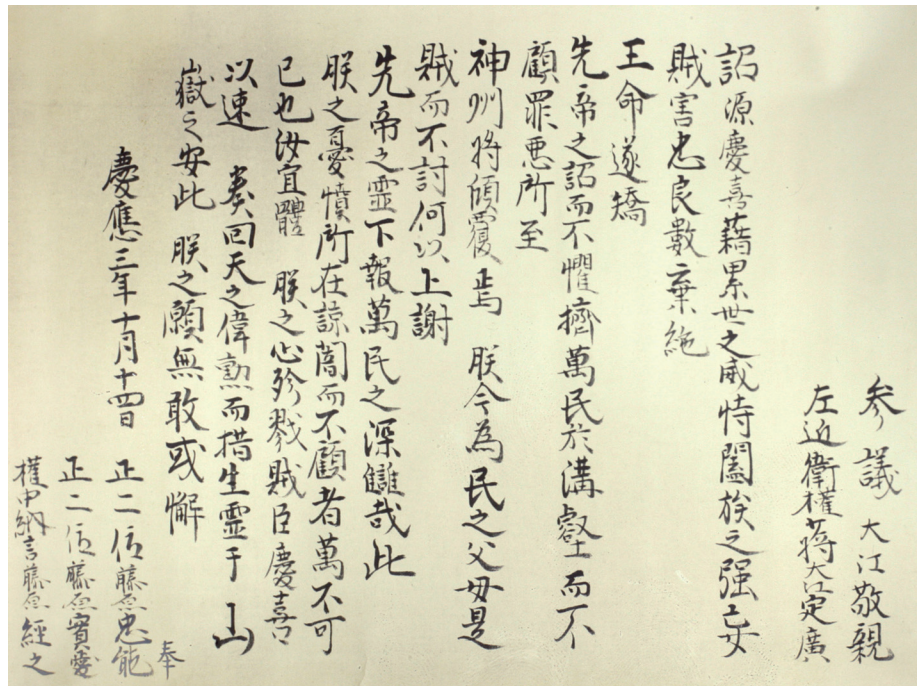 参議大江敬親
左近衛權中將大江定廣
詔源慶喜藉累世之威恃闔族之强妄
賊害忠良數棄絶
王命遂矯
先帝之詔而不懼擠萬民於溝壑而不
顧罪悪所至
神州将傾覆焉 朕今為民之父毋是
賊而不討何以上謝
先帝之靈下報萬民之深讎哉此
朕之憂憤所在諒闇而不顧者萬不可
已也汝宜體 朕之心殄戮賊臣慶喜
以速 奏回天之偉勲而措生靈于山
嶽之安此 朕之願無敢或懈
慶應三年十月十四日
正二位藤原忠能
正二位藤原實愛
權中納言藤原經之
奉